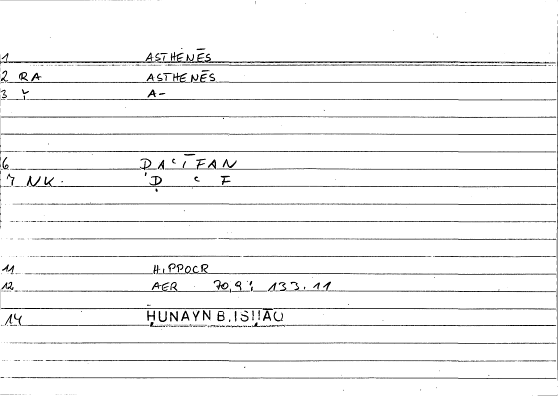 1 ASTHENĒS
2 RA ASTHENĒS
3 Y A-
6 ḌAʿĪFAN
7 NK. Ḍ ʿ F
11 HIPPOCR
12 AER 70,9; 133.11
14 ḤUNAYN B. ISḤĀQ